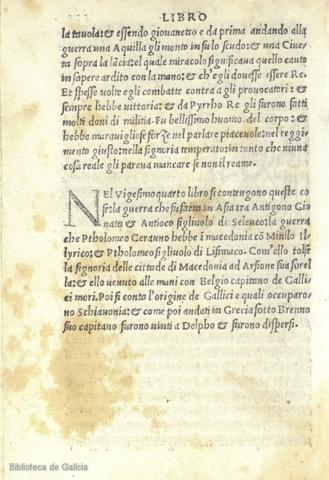 LIBRO
la tauola: & essendo giouanetto e da prima andando alla
guerra una Aquilla gli monto in su lo scudo: & una Ciuet
ta sopra la lãcia: el quale miracolo significaua quello cauto
in sapere ardito con la mano: & ch'egli douesse essere Re.
Et spesse uolte egli combatte contra a gli prouocatori: &
sempre hebbe uittoria: & da Pyrrho Re gli furono fatti
molti doni di militia. Fu bellissimo huomo del corpo: &
hebbe marauigliose forze nel parlare piaceuole: nel reggi
mento giusto: nella signoria temperato: in tanto che niuna
cosa reale gli pareua mancare se non il reame.
NEl Vigesimoquarto libro si contengono queste co
se: la guerra che fu fatta in Asia tra Antigono Go
nata & Antioco figliuolo di Seleuco: la guerra
che Ptholomeo Cerauno hebbe ĩ macedonia cõ Minllo Il
lyrico: & Ptholomeo figliuolo di Lisimaco. Com'ello tolse
la signoria delle cittade di Macedonia ad Arsione sua sorel
la: & ello uenuto alle mani con Belgio capitano de Galli
ci mori. Poi si conta l'origine de Gallici e quali occuparo
no Schiauonia: & come poi andati in Grecia sotto Brenno
suo capitano furono uinti a Delpho & furono dispersi.
Biblioteca de Galicia